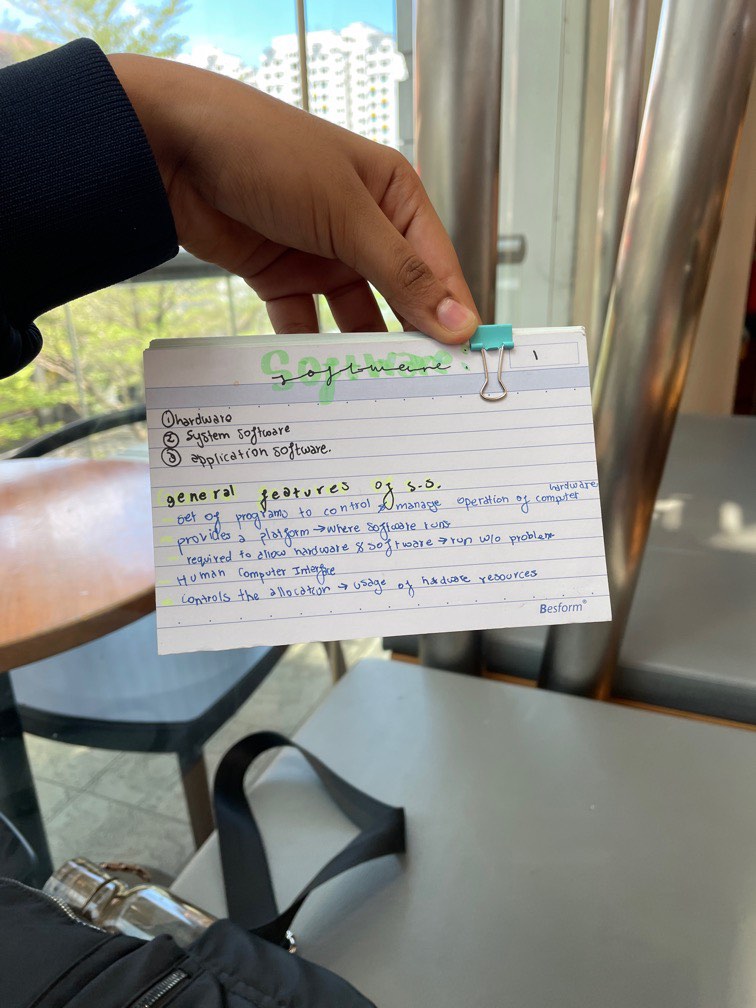 software :
1
① hardware
② System software
③ application software.
general features of s.s.
set of programs to control & manage operation of computer hardware
provides a platform → where software runs
required to allow hardware & software → run w/o problem
Human Computer Interface
controls the allocation → usage of hadware resources
Besform®